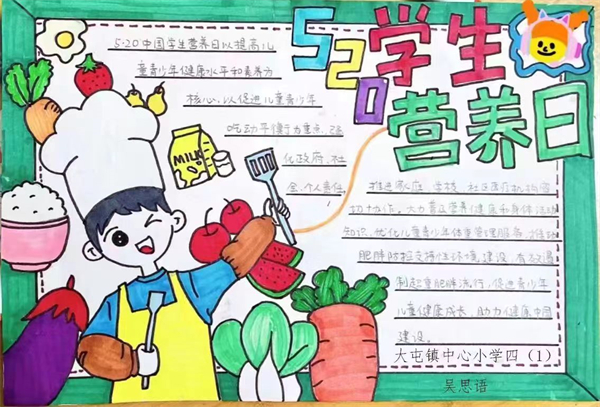 520学生
营养日
5·20中国学生营养日以提高儿
童青少年健康水平和素养为
核心,以促进儿童青少年
吃动平衡为重点,强
化政府、社
会、个人责任,
推进家庭、学校、社区医疗机构密
切协作。大力普及营养健康和身体活动
知识,优化儿童青少年体重管理服务,推动
肥胖防控支持性环境建设,有效遏
制超重肥胖流行,促进青少年
儿童健康成长,助力健康中国
建设。
MILK
大屯镇中心小学四（1）
吴思语